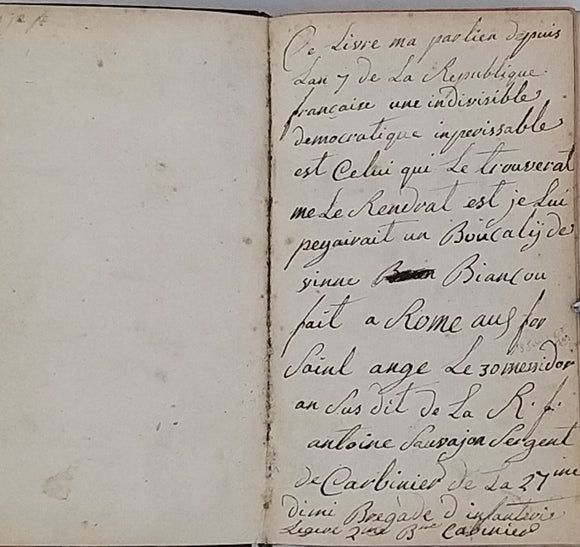 Ce Livre ma partien depuis
Lan 7 de La Republique
française une indivisible
democratique inperissable
est Celui qui Le trouverat
me Le Rendrat est je Lui
peyairait un Boucalij de
vinne Biancou
fait a Rome aus for
Saint ange Le 30 messidor
an Sus dit de La R. f.
antoine Sauvajon Sergent
de Carbinier de La 27ime
dimi Bregade d'infanterie
Legere 2me Bme Cabinier